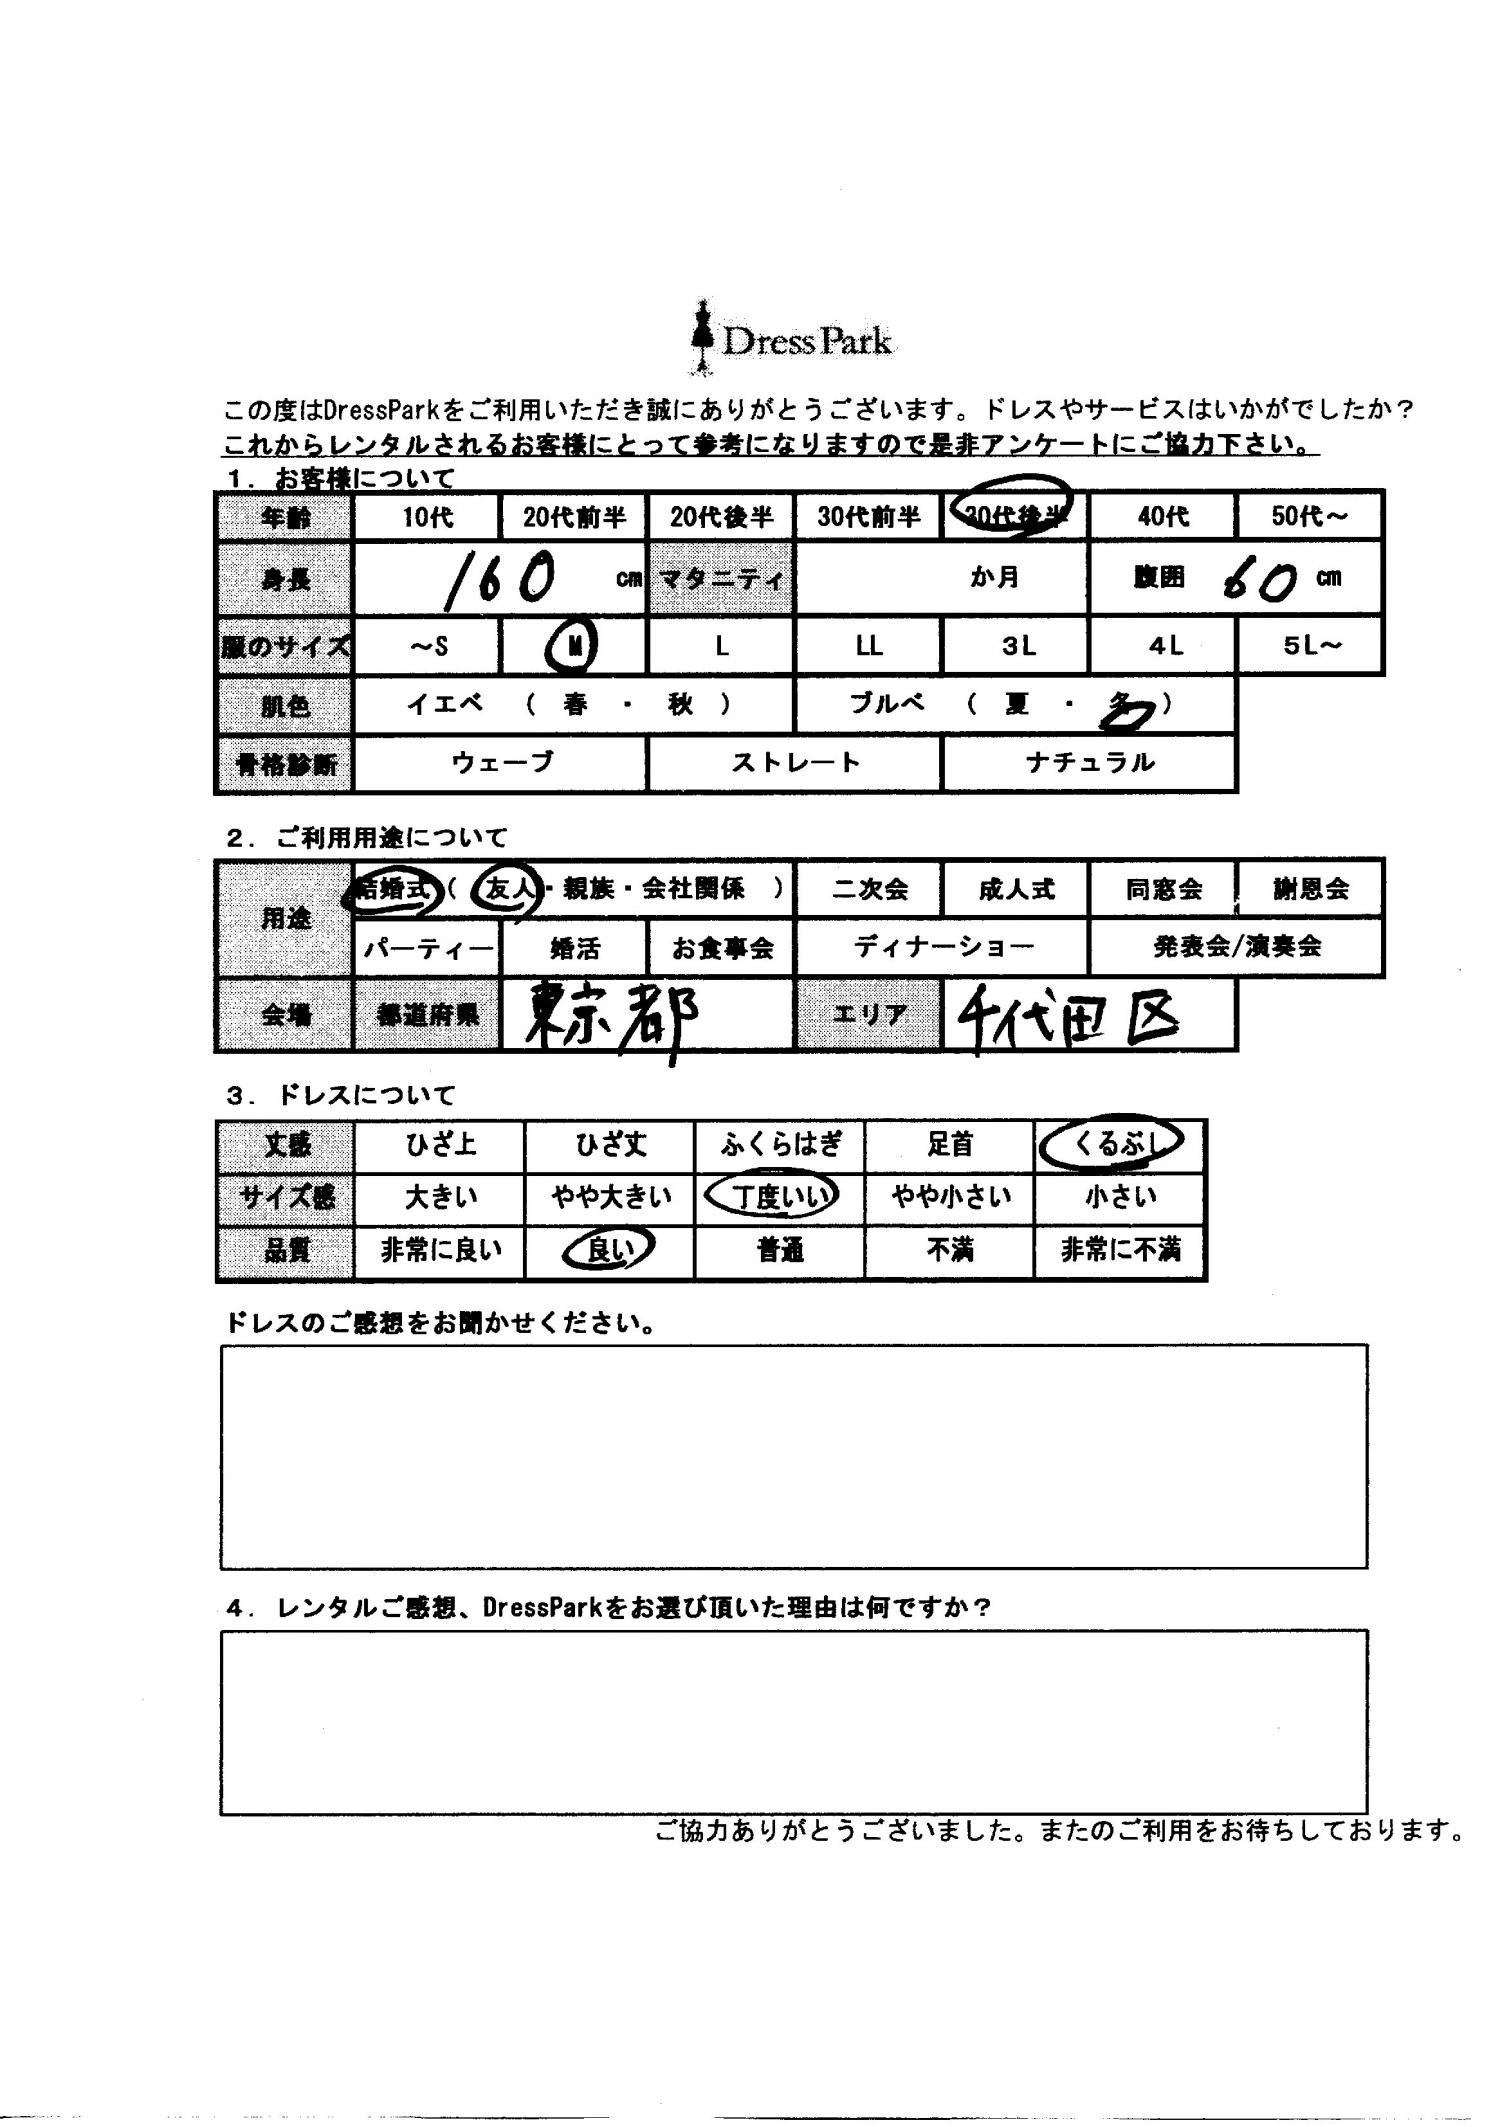 DressPark
この度はDressParkをご利用いただき誠にありがとうございます。ドレスやサービスはいかがでしたか？
これからレンタルされるお客様にとって参考になりますので是非アンケートにご協力下さい。
１．お客様について
年齢 10代 20代前半 20代後半 30代前半 30代後半 40代 50代～
身長 160 cm マタニティ か月 腹囲 60 cm
服のサイズ ～S M L LL 3L 4L 5L～
肌色 イエベ （ 春 ・ 秋 ） ブルベ （ 夏 ・ 冬 ）
骨格診断 ウェーブ ストレート ナチュラル
２．ご利用用途について
用途 結婚式（ 友人・親族・会社関係 ） 二次会 成人式 同窓会 謝恩会
パーティー 婚活 お食事会 ディナーショー 発表会/演奏会
会場 都道府県 東京都 エリア 千代田区
３．ドレスについて
丈感 ひざ上 ひざ丈 ふくらはぎ 足首 くるぶし
サイズ感 大きい やや大きい 丁度いい やや小さい 小さい
品質 非常に良い 良い 普通 不満 非常に不満
ドレスのご感想をお聞かせください。
４．レンタルご感想、DressParkをお選び頂いた理由は何ですか？
ご協力ありがとうございました。またのご利用をお待ちしております。